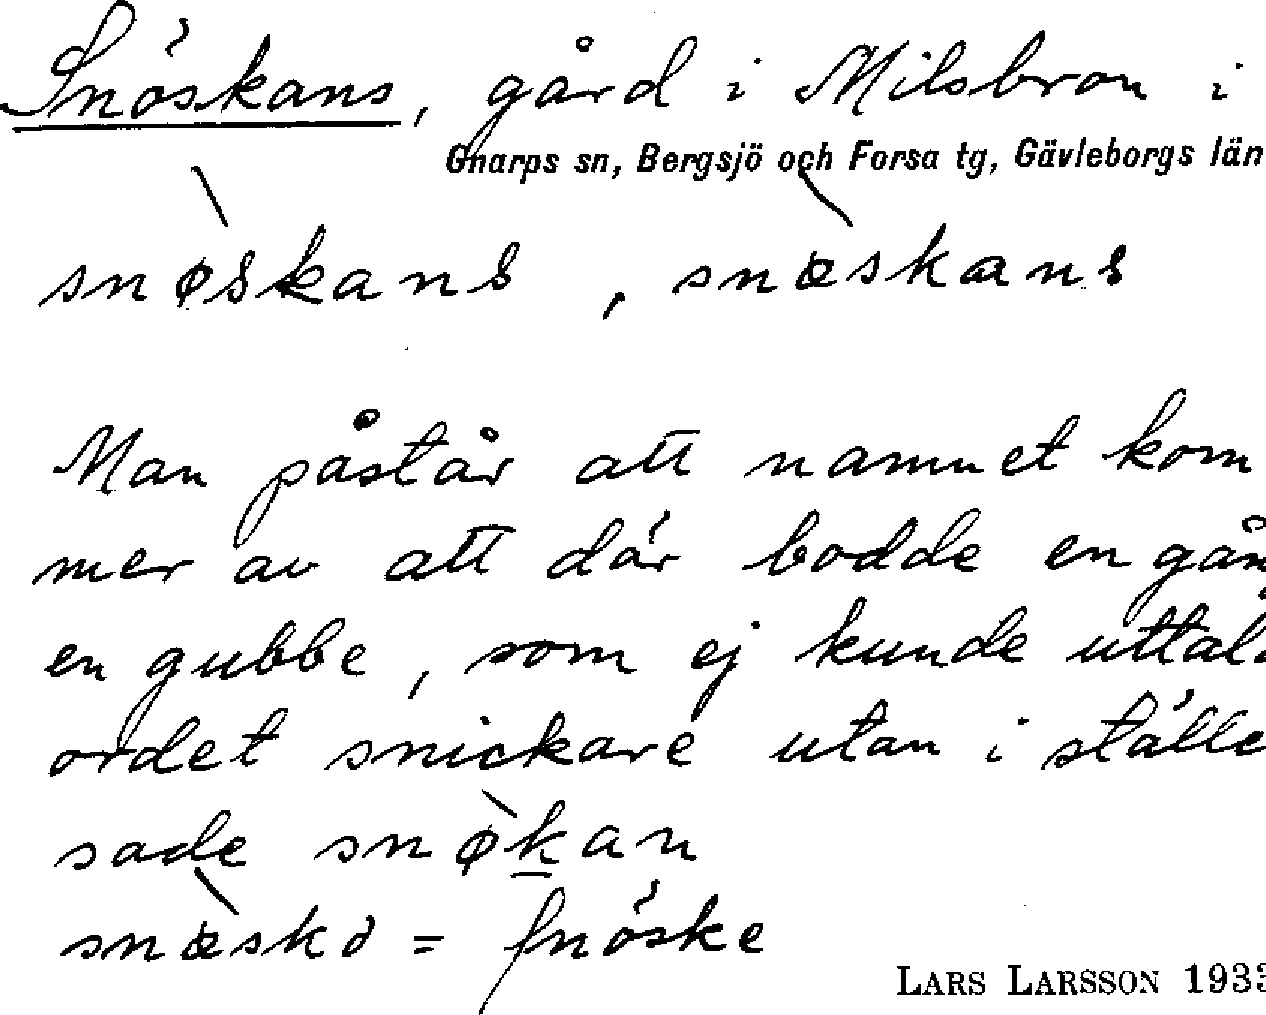 Snöskans, gård i Milsbron i
Gnarps sn, Bergsjö och Forsa tg, Gävleborgs län
snø̀skans, snæ̀skans
Man påstår att namnet kom
mer av att där bodde en gång
en gubbe, som ej kunde uttala
ordet snickare utan i ställe
sade snø̀kan
snæ̀skə = fnöske
LARS LARSSON 1933